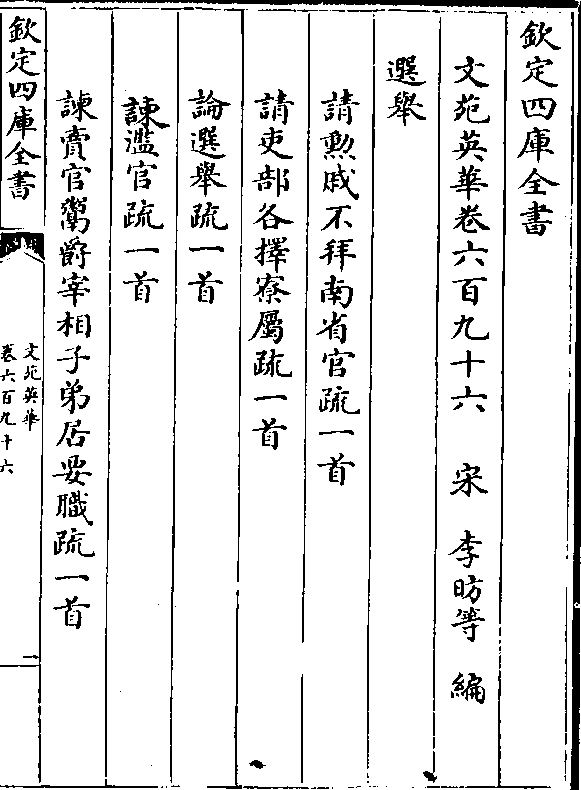 欽定四庫全書
文苑英華卷六百九十六　宋　李昉等　編
選舉
請勲戚不拜南省官疏一首
請吏部各擇寮屬疏一首
論選舉疏一首
諫濫官疏一首
諫賣官鬻爵宰相子弟居要職疏一首
欽定四庫全書
文苑英華
卷六百九十六
一